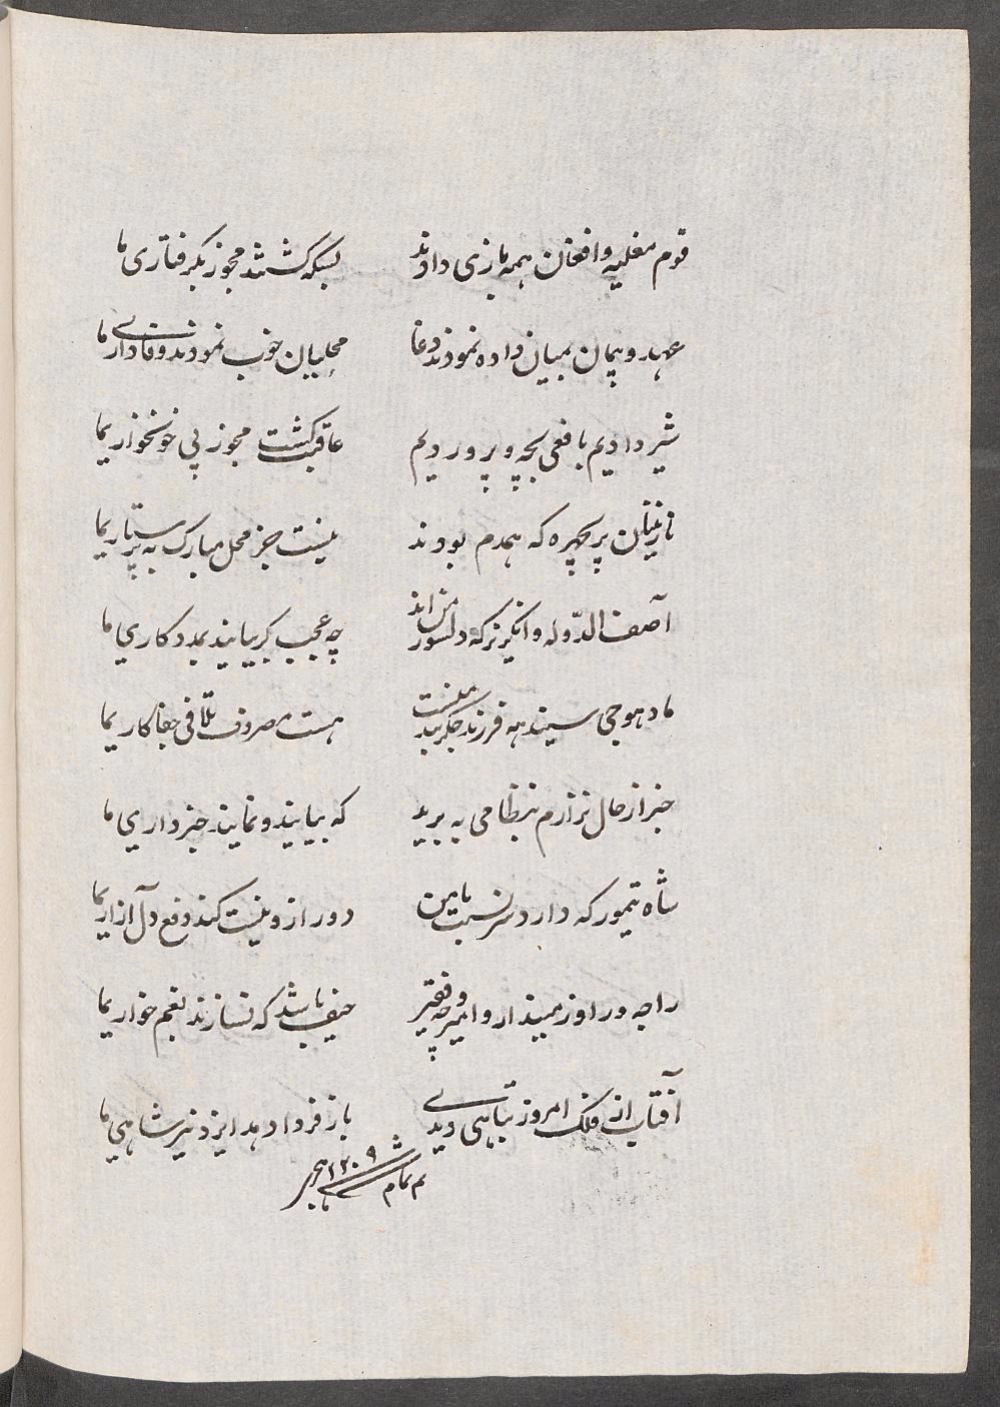 قوم مغلیه و افغان همه بازی دادند بسکه گشتند مجوز بگرفتاری ما
عهد و پیمان بمیان داده نمودند دغا محلیان خوب نمودند وفاداری ما
شیر دادیم بافعی بچه و پروردیم عاقبت گشت مجوز پی خونخواریما
نازنینان پریچهره که همدم بودند نیست جز محل مبارک به پرستاریما
آصف الدّوله و انگریز که دلسوز من اند چه عجب گر بیایند بمددکاری ما
مادهوجی سیندهیه فرزند جگربند منست هست مصروف تلافی جفاکاریما
خبر از حال نزارم بنظامی به برید که بیایند و نمایند خبرداری ما
شاه تیمور که دارد سر نسبت بامن دور از و نیست کند دفع دل آزاریما
راجه و راو زمیندار و امیر و چه فقیر حیف باشد که نسازند بغمخواریما
آفتاب از فلک امروز تباهی دیدی باز فردا دهد ایزد نیر شاهی ما
تم تمام شد ۱۲۰۹ هجر